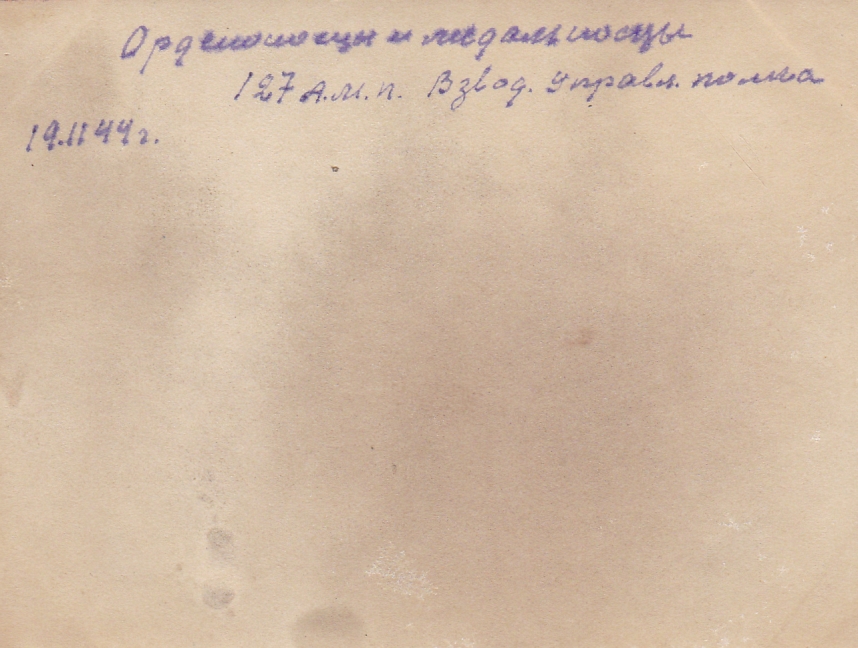 Орденоносцы и медальносцы
127 А.М.п. Взвод. Управл. полка
19.II 44 г.